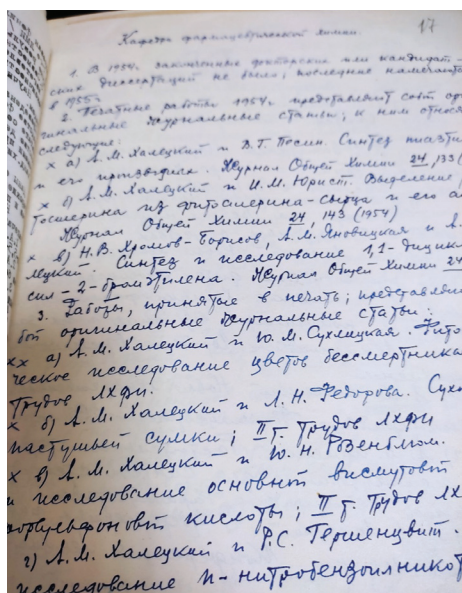 17
Кафедра фармацевтической химии.
1. В 1954г. законченных докторских или кандидат-
ских диссертаций не было; последние намечаются
в 1955г.
2. Печатные работы 1954г представляют собт ори
гинальные журнальные статьи; к ним относ
следующие:
х а) А.М. Халецкий и В.Г. Песин. Синтез пиазти
и его производных. Журнал Общей Химии 24, 133 (
х б) А.М. Халецкий и И.М. Юрист. Выделение
из фитостерина-сырца и его
Журнал Общей Химии 24, 143 (1954)
х в) Н.В. Хромов-Борисов, А.М. Яновицкая и А.
лецкий. Синтез и исследование 1,1-дицик
сил-2-бромэтилена. Журнал Общей Химии 24
3. Работы, принятые в печать; представля
бой оригинальные журнальные статьи:
хх а) А.М. Халецкий и Ю.М. Сухлицкая. Фито
ческое исследование цветов бессмертника
Трудов ЛХФИ.
х б) А.М. Халецкий и Л.Н. Федорова. Сухо
пастушьей сумки; II т. Трудов ЛХФИ
х в) А.М. Халецкий и Ю.Н.
и исследование основной висмутовт
кислоты; II т. Трудов ЛХ
г) А.М. Халецкий и Р.С. Гершенцвит.
исследование п-нитробензоилникот